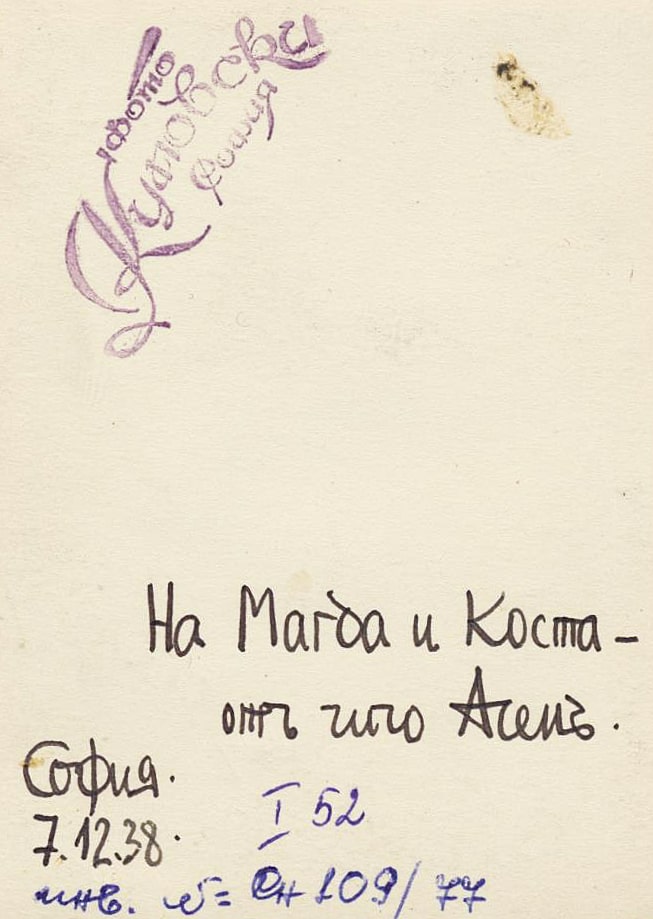 фото
Кутовски
София
На Магда и Коста -
отъ чичо Асенъ.
София.
7.12.38.
I 52
инв. №= Сн 109/77